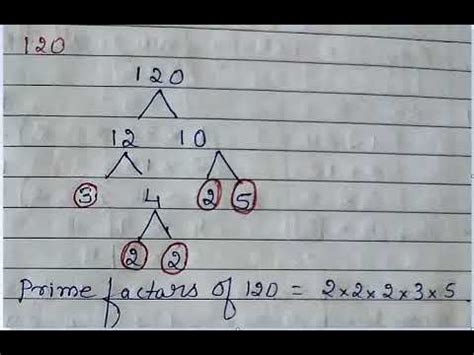 120
120
12 10
3 4 2 5
2 2
Prime factars of 120 = 2×2×2×3×5